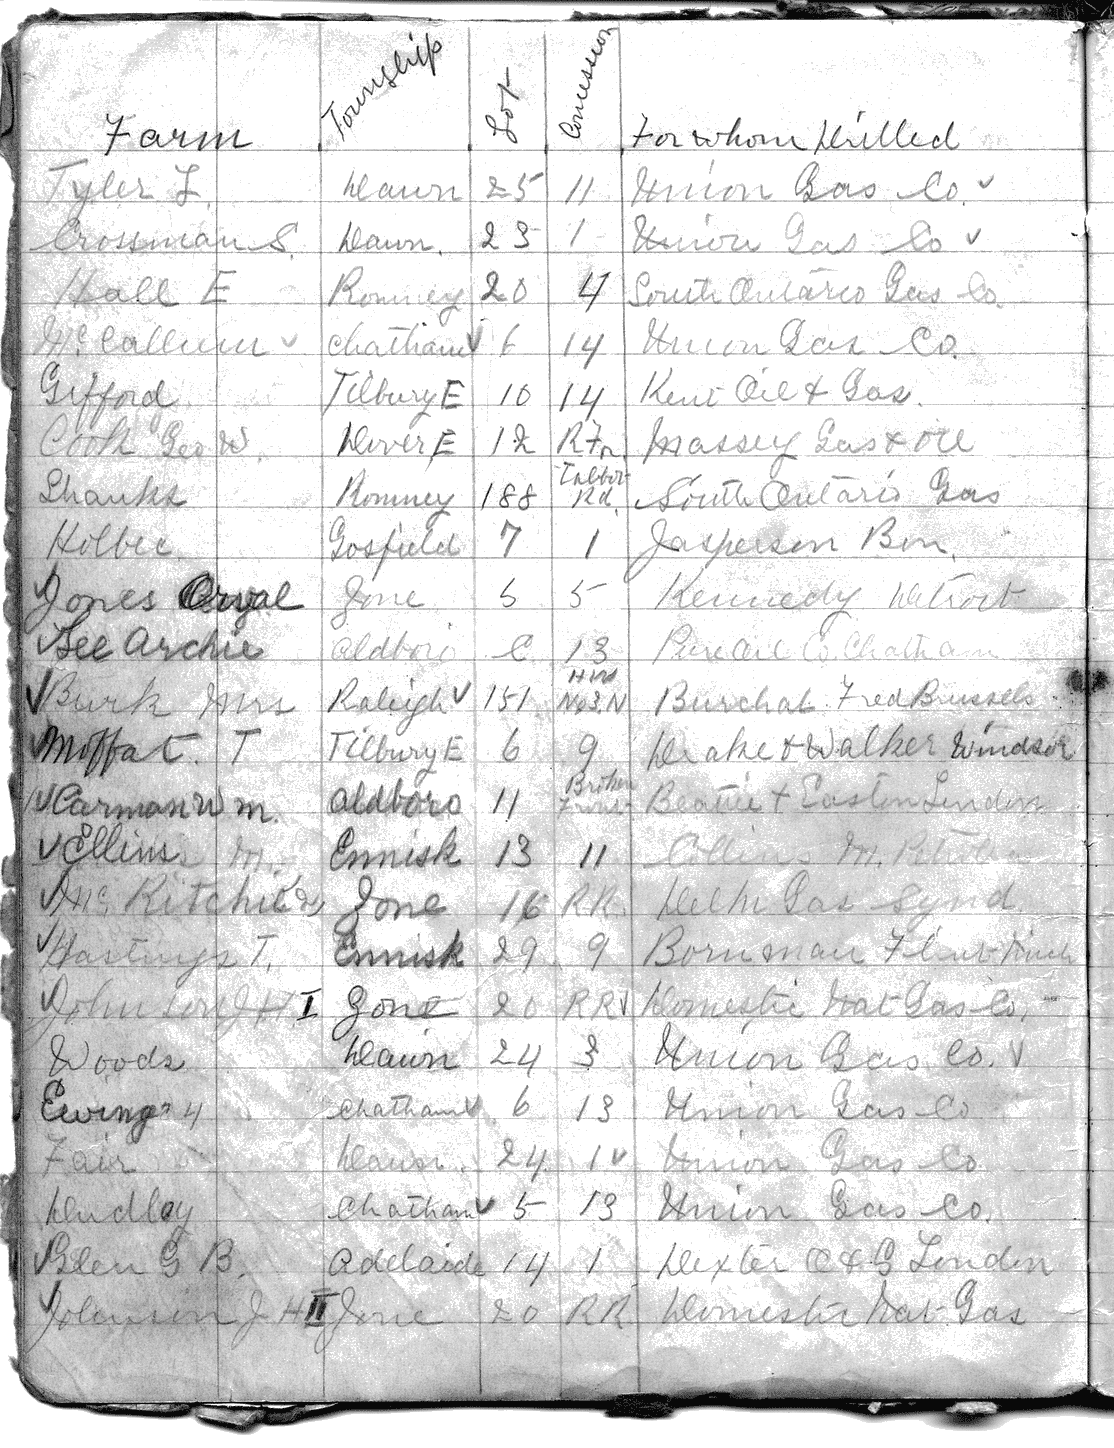 Farm Township Lot Concession For whom Drilled
Tyler L. Dawn 25 11 Union Gas Co. ✓
Crossman S. Dawn. 23 1 Union Gas Co ✓
Hall E Romney 20 4 South Ontario Gas Co.
Mc Callum ✓ Chatham ✓ 6 14 Union Gas Co.
Gifford Tilbury E 10 14 Kent Oil & Gas.
Cook Geo W. Dover E 12 Massey Gas & Oil
Shanks Romney 188 Talbot Rd. South Ontario Gas
Holbec Gosfield 7 1 Jasperson Bon.
✓ Jones Orval Zone 5 5 Kennedy Detroit
✓ Gee Archie Aldboro C 13 Pure Oil Co. Chatham
✓ Burk Mrs Raleigh ✓ 151 Burchat Fred Brussels
✓ Moffat. T Tilbury E 6 9 Drake & Walker Windsor
✓ Carman Wm. Aldboro 11 Broken Front Beattie & Easton London
✓ Ellins M. Ennisk 13 11 Collins M.
✓ Mc Ritchie Zone 16 RR. Delhi Gas Synd.
✓ Hastings T. Ennisk 29 9 Bornman Flint Mich
✓ Johnson J H I Zone 20 RR ✓ Domestic Nat Gas Co.
Woods Dawn 24 3 Union Gas Co. ✓
Ewing 4 Chatham ✓ 6 13 Union Gas Co
Fair Dawn. 24 1 ✓ Union Gas Co
Dudley Chatham ✓ 5 13 Union Gas Co.
✓ Glen G B. Adelaide 14 1 Dexter O & G London
✓ Johnson J H II Zone 20 RR Domestic Nat. Gas